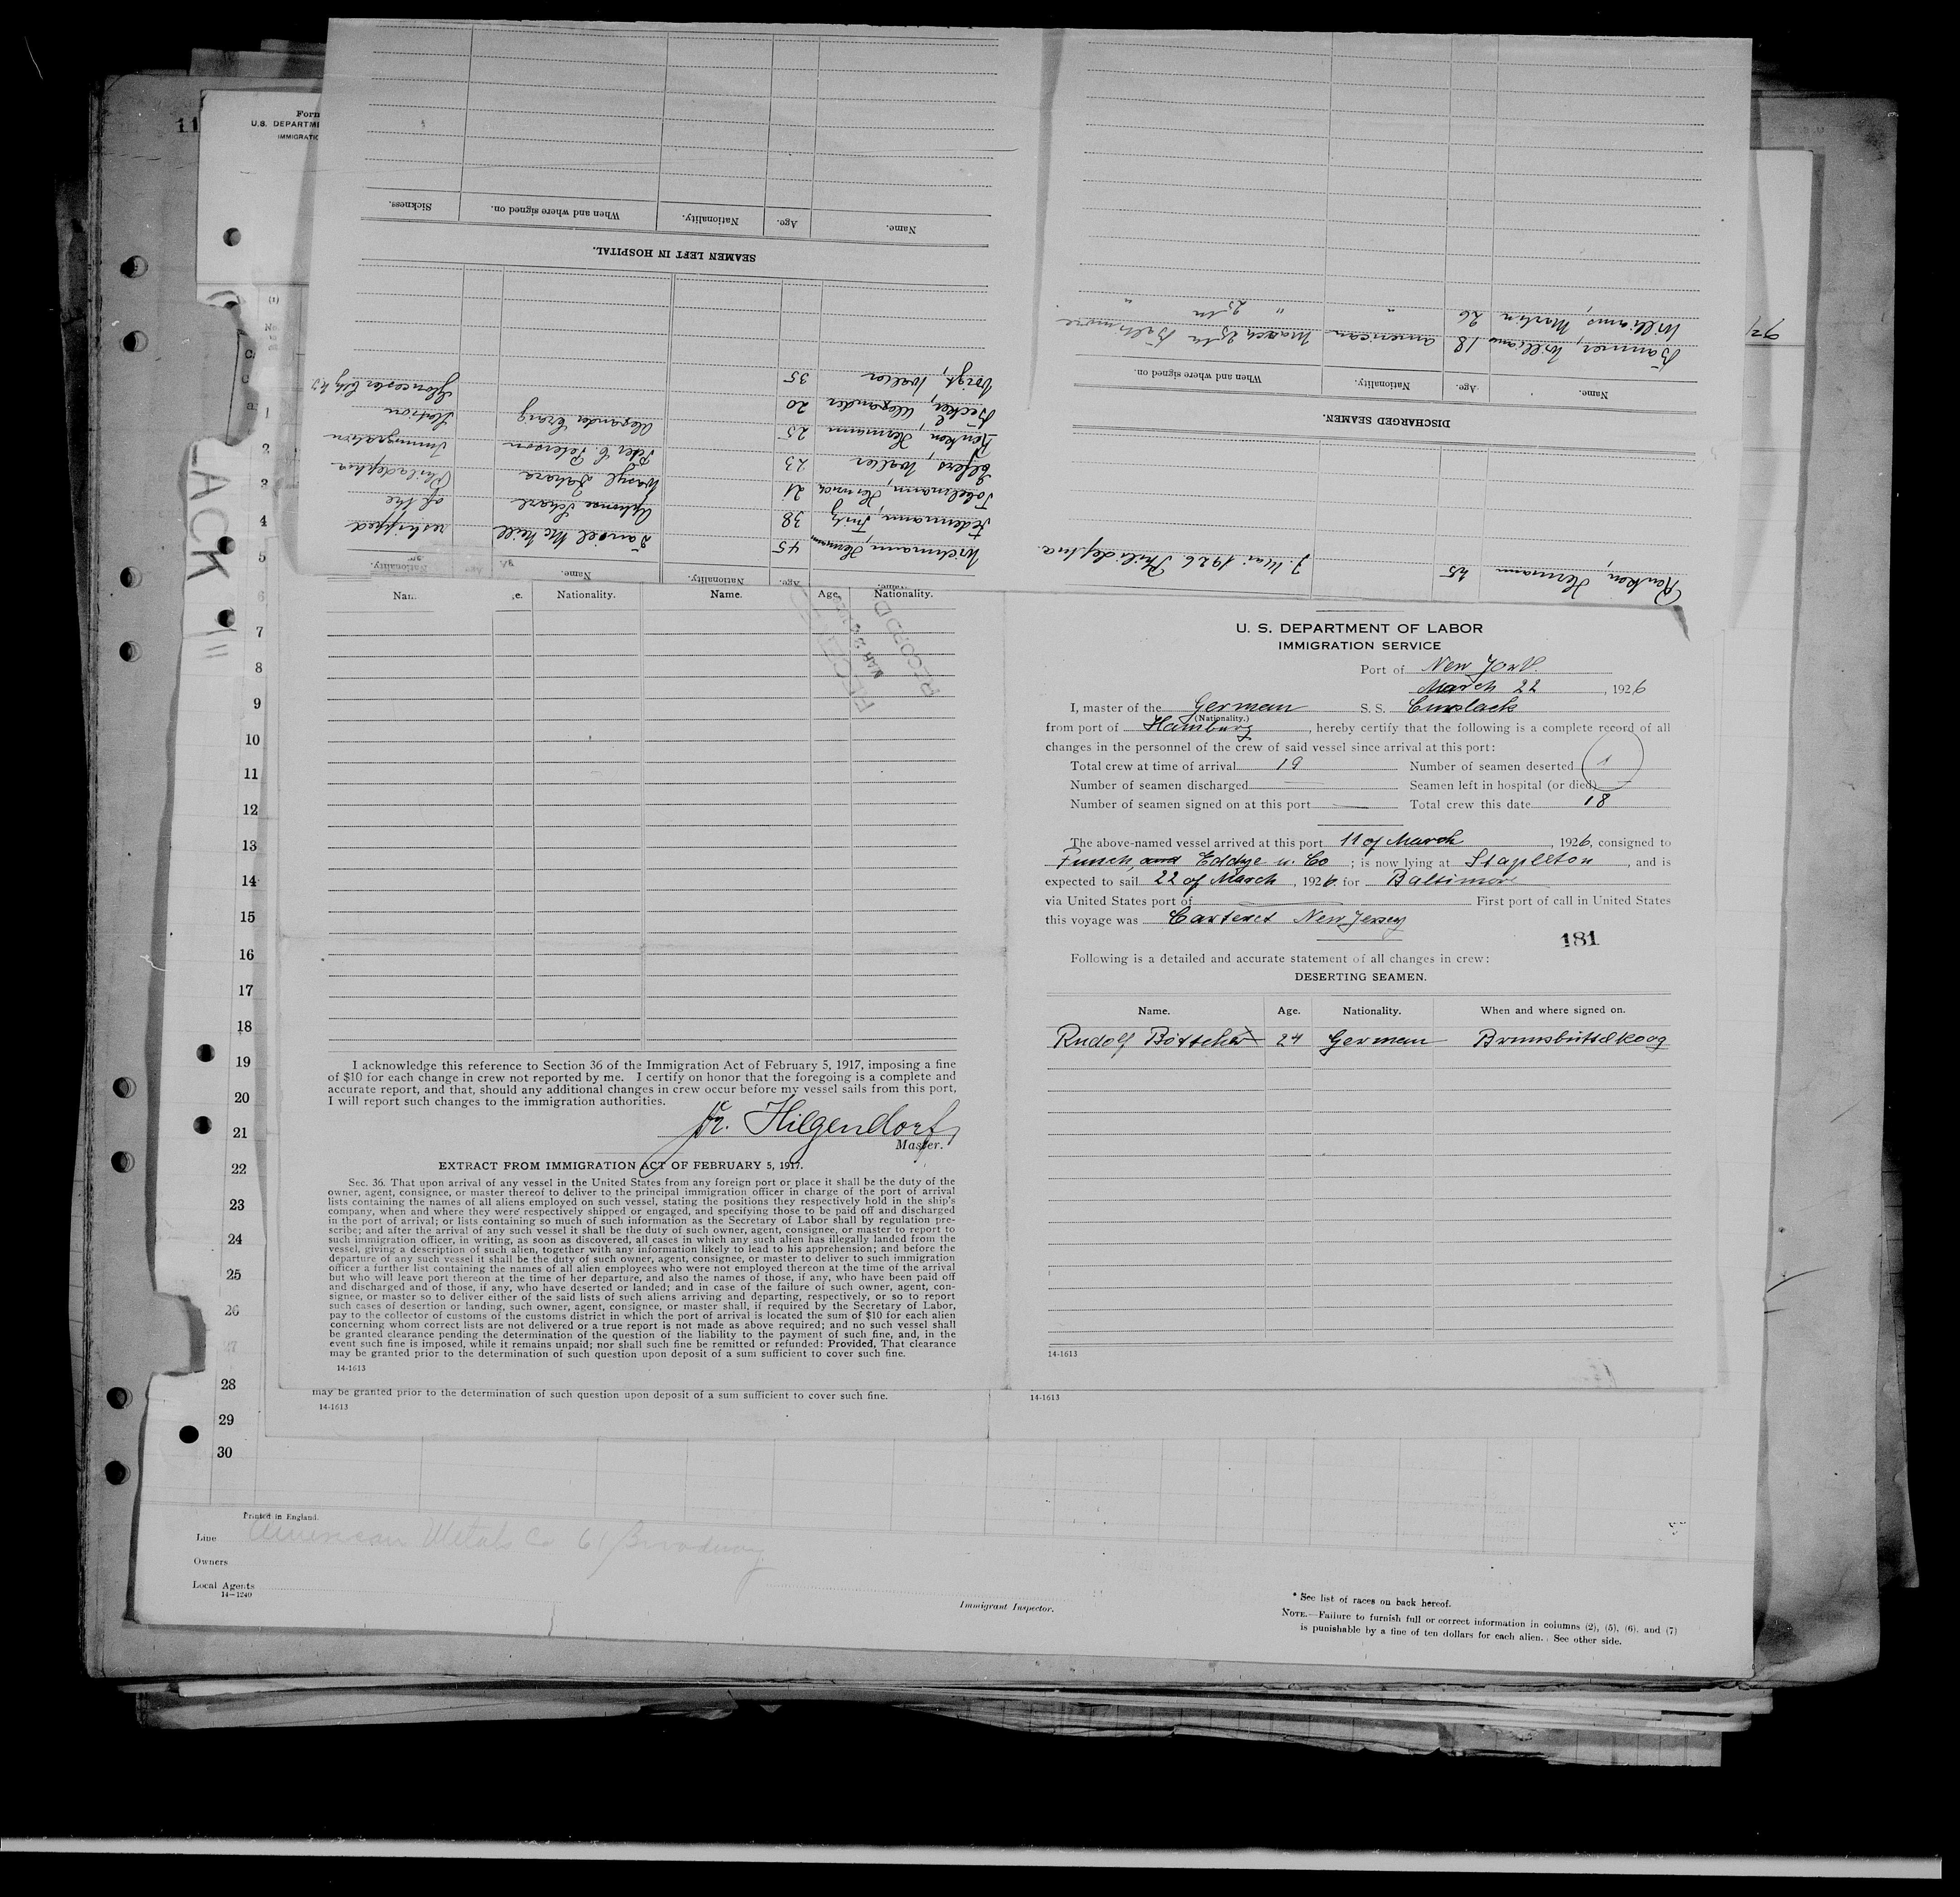 11
Form
U.S. DEPARTME
IMMIGRATIO
(1)
SEAMEN LEFT IN HOSPITAL.
Name. Age. Nationality. When and where signed on. Sickness.
Wichmann, Hermann 45 Daniel McNeill reshipped
Federmann, Fritz 38 Alphonse Scharl of the
Tobelmann, Hinrich 21 Wasyl Zahara Philadelphia
Elfers, Walter 23 Peter C. Peterson Immigration
Renken, Hermann 25 Alexander Craig Station
Becker, Alexander 20 Gloucester City N.J.
Voigt, Walter 35
Name. Age. Nationality. Name. Age. Nationality.
Renken, Hermann 25 1926 Philadelphia
DISCHARGED SEAMEN.
Name. Age. Nationality. When and where signed on.
Banner, William 18 american March 25th Baltimore
Williams, Martin 26 " " 25th "
LACK
1
2
3
4
5
6
7
8
9
10
11
12
13
14
15
16
17
18
19
20
21
22
23
24
25
26
27
28
29
30
Nam e. Nationality. Name. Age. Nationality.
RECORD
I acknowledge this reference to Section 36 of the Immigration Act of February 5, 1917, imposing a fine
of $10 for each change in crew not reported by me. I certify on honor that the foregoing is a complete and
accurate report, and that, should any additional changes in crew occur before my vessel sails from this port,
I will report such changes to the immigration authorities.
Hilgendorf
Master.
EXTRACT FROM IMMIGRATION ACT OF FEBRUARY 5, 1917.
Sec. 36. That upon arrival of any vessel in the United States from any foreign port or place it shall be the duty of the
owner, agent, consignee, or master thereof to deliver to the principal immigration officer in charge of the port of arrival
lists containing the names of all aliens employed on such vessel, stating the positions they respectively hold in the ship's
company, when and where they were respectively shipped or engaged, and specifying those to be paid off and discharged
in the port of arrival; or lists containing so much of such information as the Secretary of Labor shall by regulation pre-
scribe; and after the arrival of any such vessel it shall be the duty of such owner, agent, consignee, or master to report to
such immigration officer, in writing, as soon as discovered, all cases in which any such alien has illegally landed from the
vessel, giving a description of such alien, together with any information likely to lead to his apprehension; and before the
departure of any such vessel it shall be the duty of such owner, agent, consignee, or master to deliver to such immigration
officer a further list containing the names of all alien employees who were not employed thereon at the time of the arrival
but who will leave port thereon at the time of her departure, and also the names of those, if any, who have been paid off
and discharged and of those, if any, who have deserted or landed; and in case of the failure of such owner, agent, con-
signee, or master so to deliver either of the said lists of such aliens arriving and departing, respectively, or so to report
such cases of desertion or landing, such owner, agent, consignee, or master shall, if required by the Secretary of Labor,
pay to the collector of customs of the customs district in which the port of arrival is located the sum of $10 for each alien
concerning whom correct lists are not delivered or a true report is not made as above required; and no such vessel shall
be granted clearance pending the determination of the question of the liability to the payment of such fine, and, in the
event such fine is imposed, while it remains unpaid; nor shall such fine be remitted or refunded: Provided, That clearance
may be granted prior to the determination of such question upon deposit of a sum sufficient to cover such fine.
14-1613
may be granted prior to the determination of such question upon deposit of a sum sufficient to cover such fine.
14-1613
U. S. DEPARTMENT OF LABOR
IMMIGRATION SERVICE
Port of New York
March 22, 1926
I, master of the German S. S. Curslack
(Nationality.)
from port of Hamburg, hereby certify that the following is a complete record of all
changes in the personnel of the crew of said vessel since arrival at this port:
Total crew at time of arrival 19 Number of seamen deserted 1
Number of seamen discharged — Seamen left in hospital (or died) —
Number of seamen signed on at this port — Total crew this date 18
The above-named vessel arrived at this port 11 of March, 1926, consigned to
Funch, and Eddye u. Co; is now lying at Stapleton, and is
expected to sail 22 of March, 1926. for Baltimore
via United States port of — First port of call in United States
this voyage was Carteret New Jersey
181
Following is a detailed and accurate statement of all changes in crew:
DESERTING SEAMEN.
Name. Age. Nationality. When and where signed on.
Rudolf Böttcher 24 German Brunsbüttelkoog
14-1613
14-1613
Printed in England.
Line American Metals Co 61 Broadway
Owners
Local Agents
14-1240
Immigrant Inspector.
* See list of races on back hereof.
NOTE.—Failure to furnish full or correct information in columns (2), (5), (6), and (7)
is punishable by a fine of ten dollars for each alien. See other side.